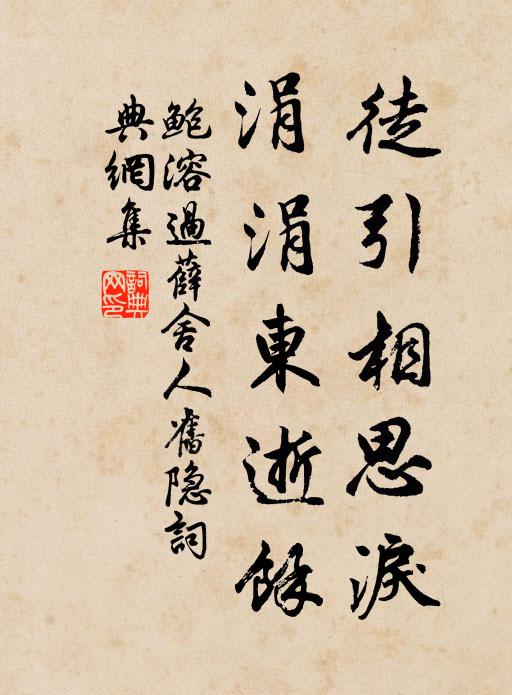 徒引相思淚
涓涓東逝餘
鮑溶過薛舍人舊隐詞
典網集
詞典
网印